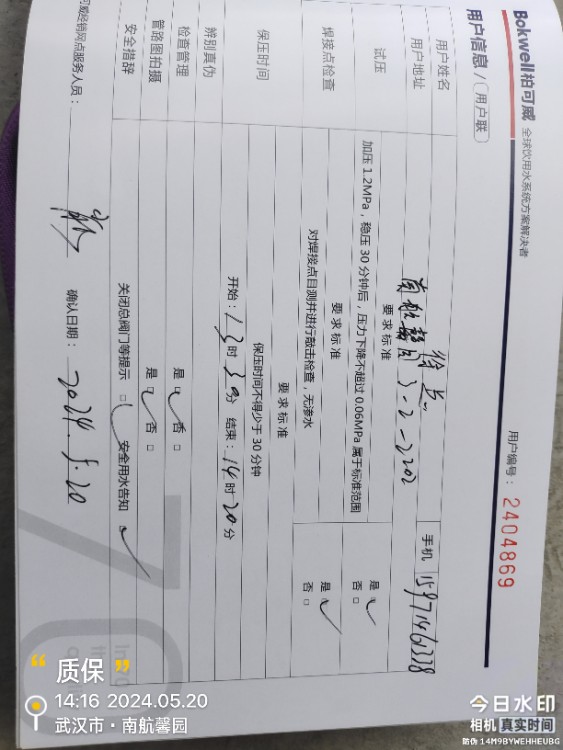 Bokwell柏可威 全球饮用水系统方案解决者
用户信息/用户联 用户编号：2404869
用户姓名 手机
用户地址 3-2-2202
试压 要求标准
加压 1.2MPa，稳压 30 分钟后，压力下降不超过 0.06MPa 属于标准范围 是 否
焊接点检查 要求标准
对焊接点目测并进行敲击检查，无渗水 是 否
保压时间 要求标准
保压时间不得少于 30 分钟
开始：13时30分 结束：14时20分
辨别真伪
检查管理 是 否
管路图拍摄 是 否
安全措辞 关闭总阀门等提示 安全用水告知
可威经销网点服务人员： 确认日期：2024.5.20
“质保”
14:16 2024.05.20
武汉市·南航馨园
今日水印
相机 真实时间
防伪 14M9BYWEHHEUBG